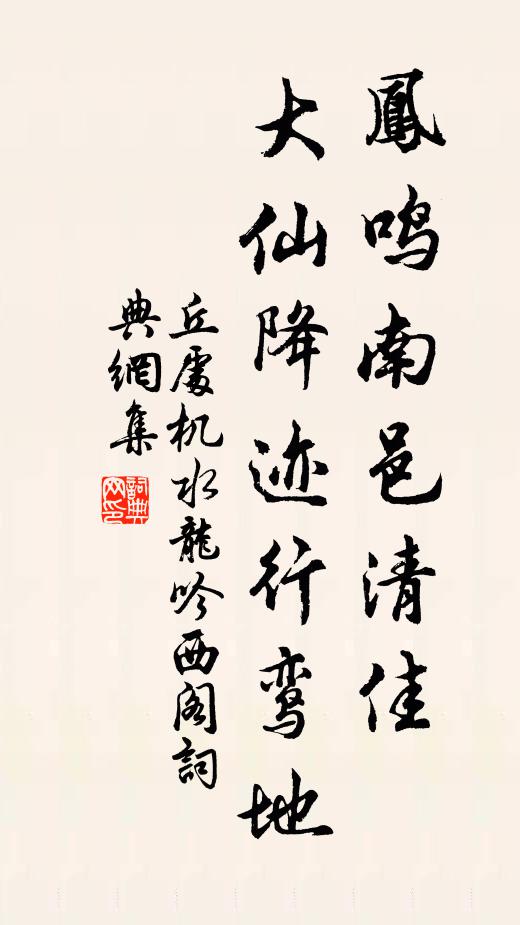 鳳鸣南邑清佳
大仙降迹行鸾地
丘處机水龍吟西阁詞
典網集
詞典
网印